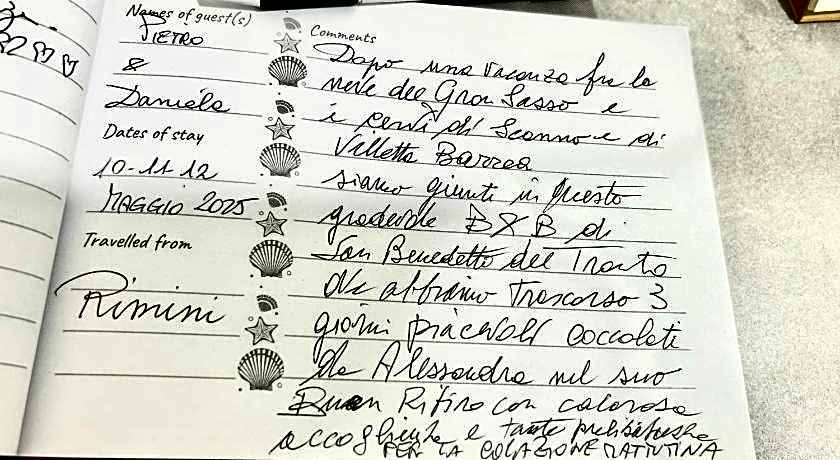 Names of guest(s)
PIETRO
&
Daniela
Dates of stay
10-11-12
MAGGIO 2025
Travelled from
Rimini
Comments
Dopo una vacanza fra la
neve del Gran Sasso e
i cervi di Scanno e di
Villetta Barrea
siamo giunti in questo
gradevole B&B di
San Benedetto del Tronto
ove abbiamo trascorso 3
giorni piacevoli coccolati
da Alessandra nel suo
Buen Ritiro con calorosa
accoglienza e tante prelibatezze
PER LA COLAZIONE MATTUTINA